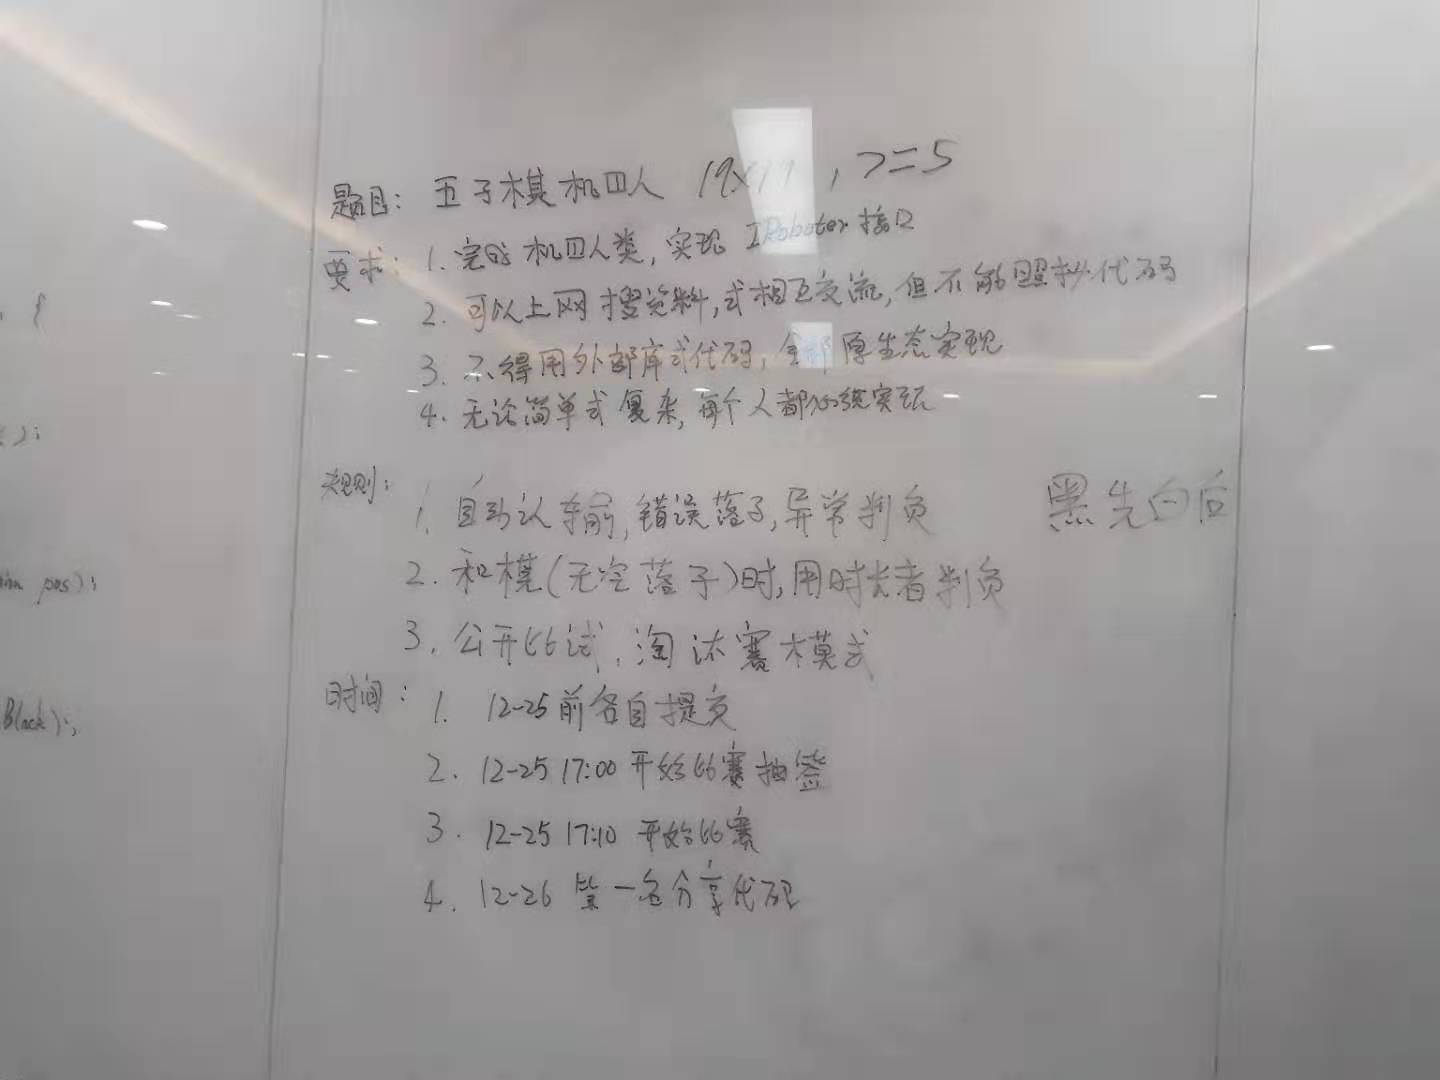 题目: 五子棋机四人 19x19 , >=5
要求: 1. 完成机四人类, 实现 IRoboter 接口
2. 可以上网搜资料, 或相互交流, 但不能照抄代码
3. 不得用外部库或代码, 全部原生态实现
4. 无论简单或复杂, 每个人都必须实现
规则: 1. 自动认输, 错误落子, 异常判负
黑先白后
2. 和棋(无空落子)时, 用时长者判负
3. 公开比试, 淘汰赛模式
时间: 1. 12-25前各自提交
2. 12-25 17:00 开始比赛抽签
3. 12-25 17:10 开始比赛
4. 12-26 第一名分享代码
{
pos);
Black);